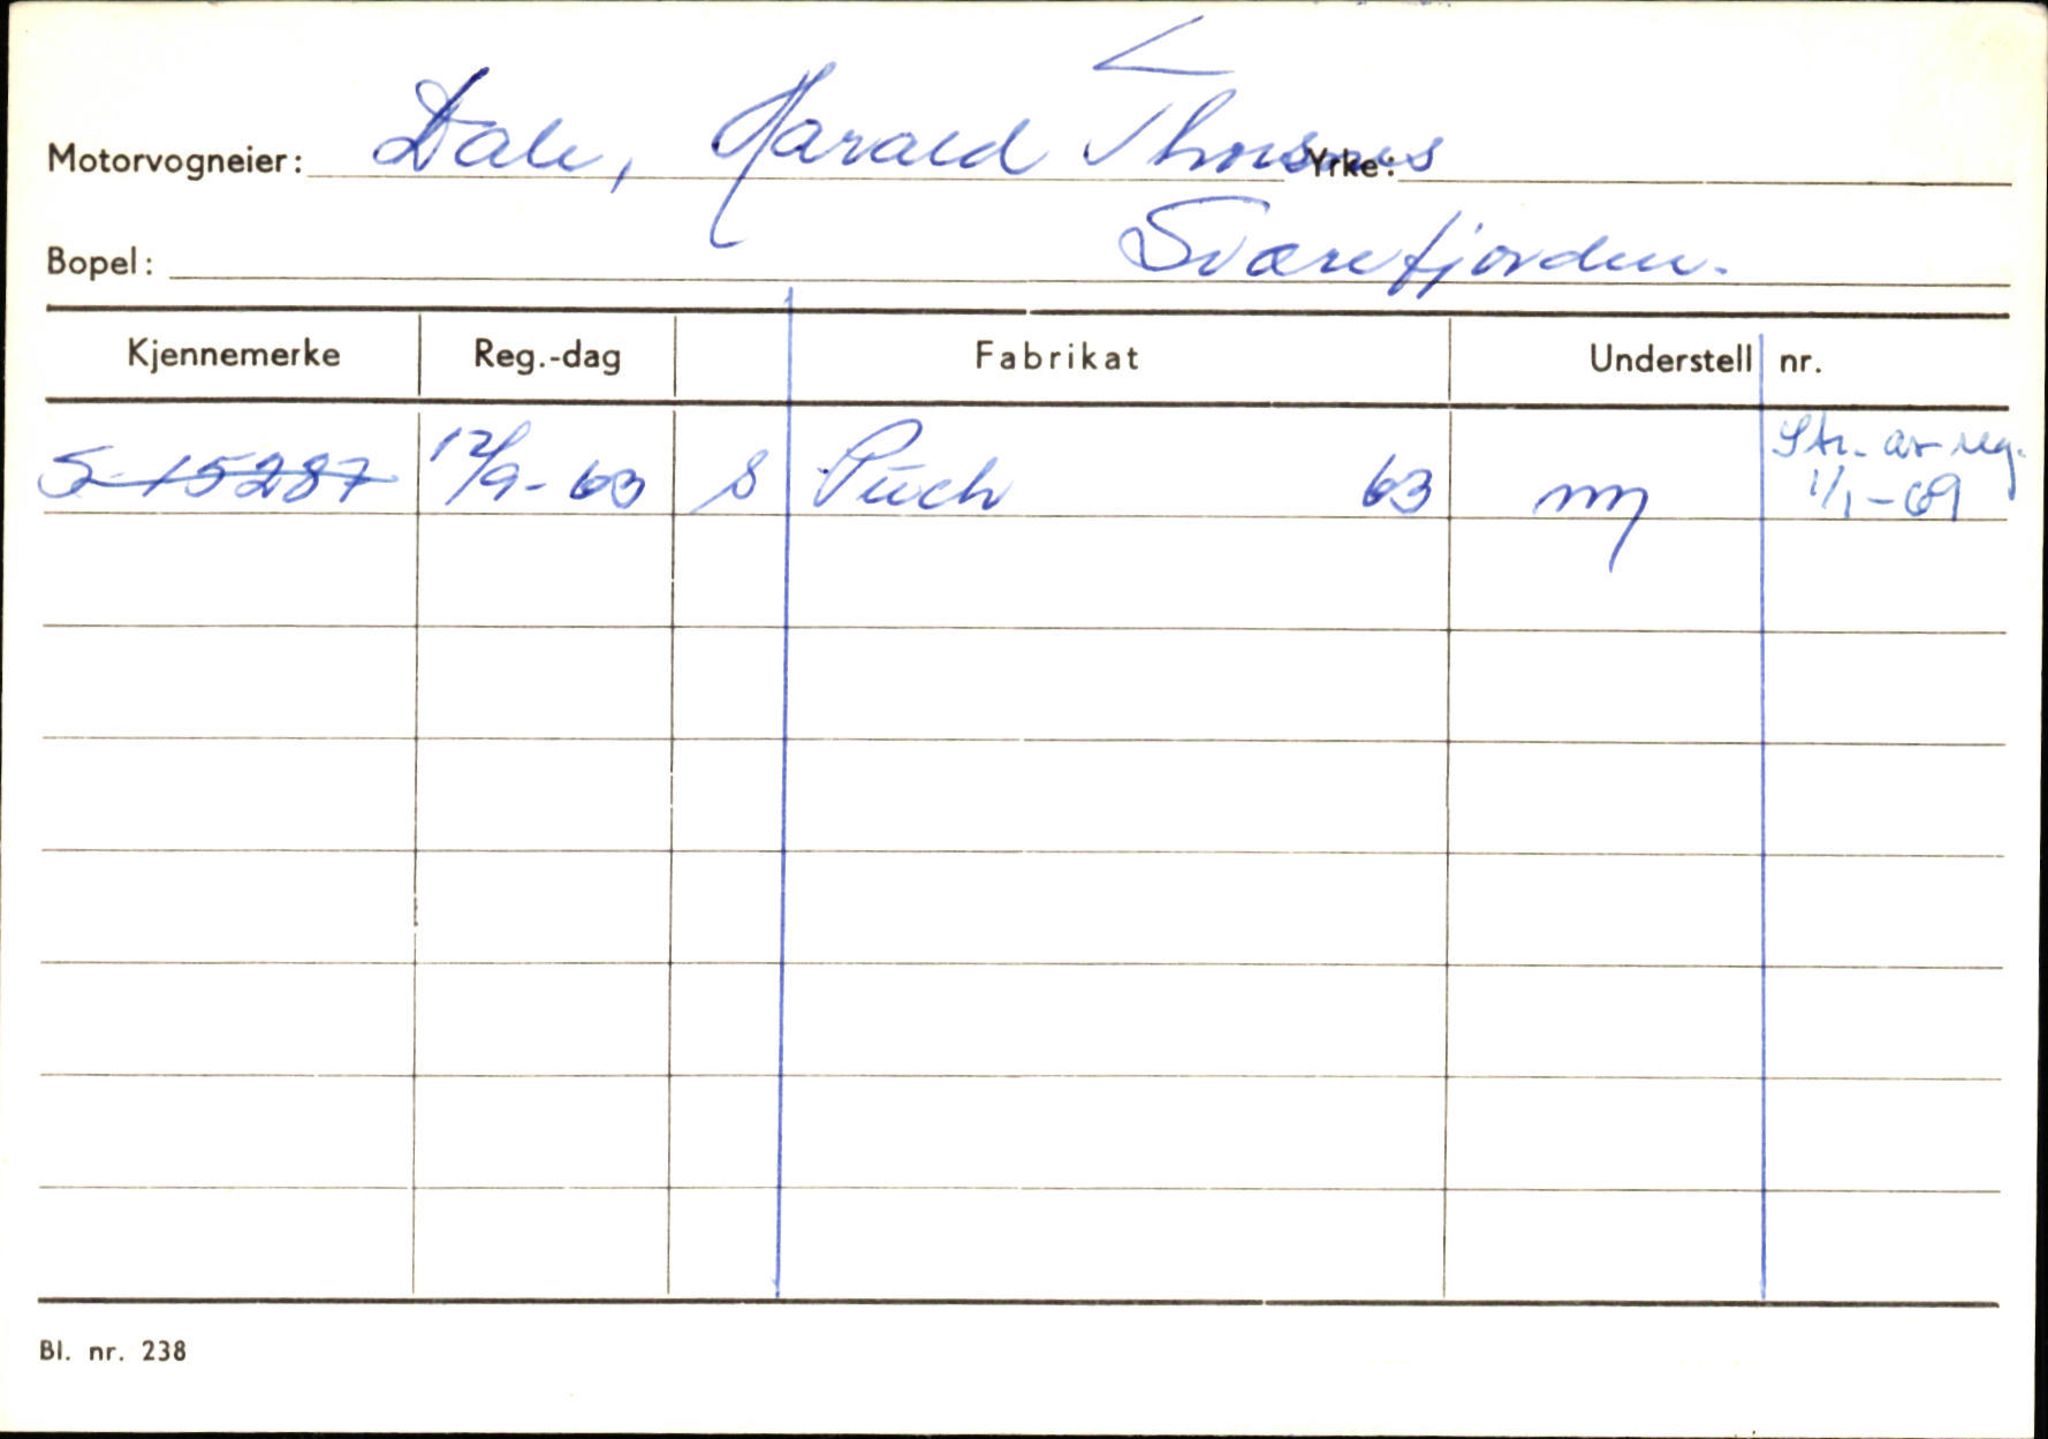 Motorvogneier: Dale, Harald Thorsnes Yrke:
Bopel: Sværefjorden.
Kjennemerke Reg.-dag Fabrikat Understell nr.
S-15287 12/9-63 S Puch 63 ny Str. av reg.
1/1-69
Bl. nr. 238